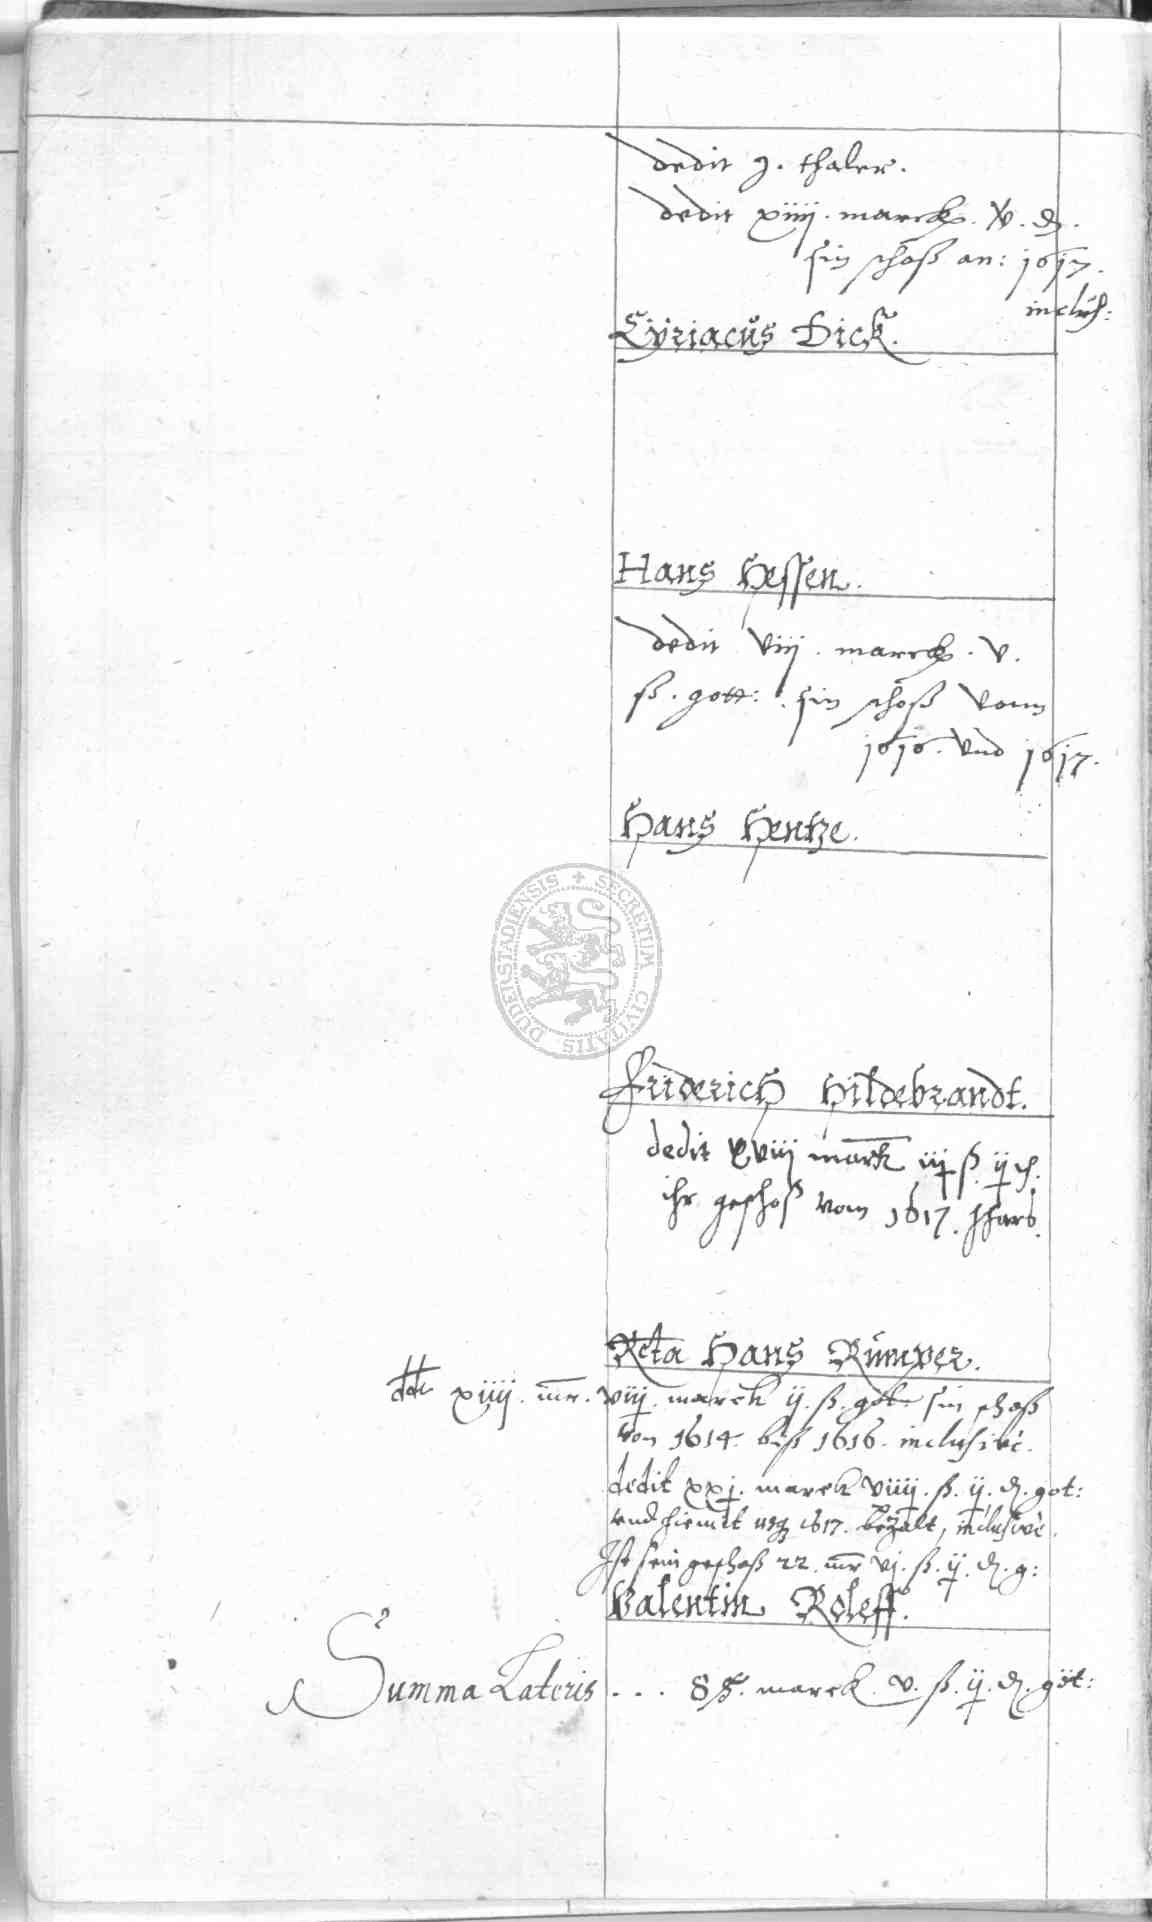 dedit j. thaler.
dedit xiiij. marck. v. d.
sin schoß an: 1617.
inclus:
Cyriacus Dick.
Hans Hessen.
dedit viij. marck. v.
ß. gott: sin schoß vonn
1616. vnd 1617.
Hans Hentze.
SECRETUM CIVITATIS DUDERSTADIENSIS
Friderich Hildebrandt.
dedit xviij marck iij ß. ij d:
ihr geschoß vom 1617. Jhars.
Rcta Hans Rümper.
ddt xiiij. mr. viij. marck ij. ß. got: sin schoß
von 1614. biß 1616. inclusivè.
dedit xxj. marck viiij. ß. ij. d. got:
vnd hiemit usq 1617. bezalt, inclusivè.
Ist sein geschoß 22. mr vj. ß. ij. d. g:
Valentin Roleff.
Summa Lateris ... 85. marck. v. ß. ij. d. göt: